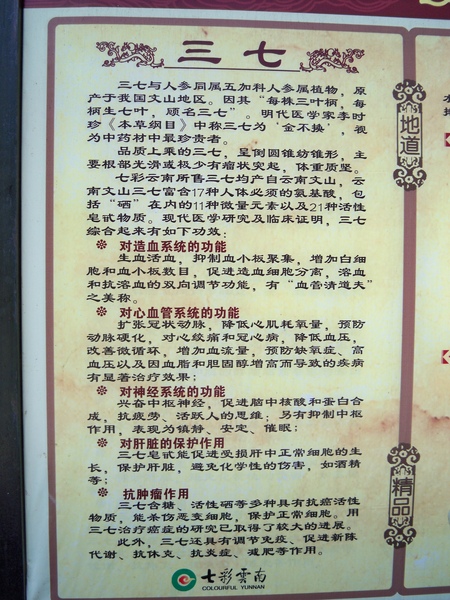 三七
三七与人参同属五加科人参属植物，原
产于我国文山地区。因其“每株三叶柄，每
柄生七叶，顾名三七”。明代医学家李时
珍《本草纲目》中称三七为‘金不换’，视
为中药材中最珍贵者。
品质上乘的三七，呈倒圆锥纺锥形，主
要根部光滑或极少有瘤状突起，体重质坚。
七彩云南所售三七均产自云南文山，云
南文山三七富含17种人体必须的氨基酸，包
括“硒”在内的11种微量元素以及21种活性
皂甙物质。现代医学研究及临床证明，三七
综合起来有如下功效：
对造血系统的功能
生血活血，抑制血小板聚集，增加白细
胞和血小板数目，促进造血细胞分离，溶血
和抗溶血的双向调节功能，有“血管清道夫”
之美称。
对心血管系统的功能
扩张冠状动脉，降低心肌耗氧量，预防
动脉硬化，对心绞痛和冠心病，降低血压，
改善微循环，增加血流量，预防缺氧症、高
血压以及因血脂和胆固醇增高而导致的疾病
有显著治疗效果；
对神经系统的功能
兴奋中枢神经，促进脑中核酸和蛋白合
成，抗疲劳、活跃人的思维；另有抑制中枢
作用，表现为镇静、安定、催眠；
对肝脏的保护作用
三七皂甙能促进受损肝中正常细胞的生
长，保护肝脏，避免化学性的伤害，如酒精
等；
抗肿瘤作用
三七含糖、活性硒等多种具有抗癌活性
物质，能杀伤恶变细胞，保护正常细胞。用
三七治疗癌症的研究已取得了较大的进展。
此外，三七还具有调节免疫、促进新陈
代谢、抗休克、抗炎症、减肥等作用。
七彩雲南
COLOURFUL YUNNAN
地道
精品